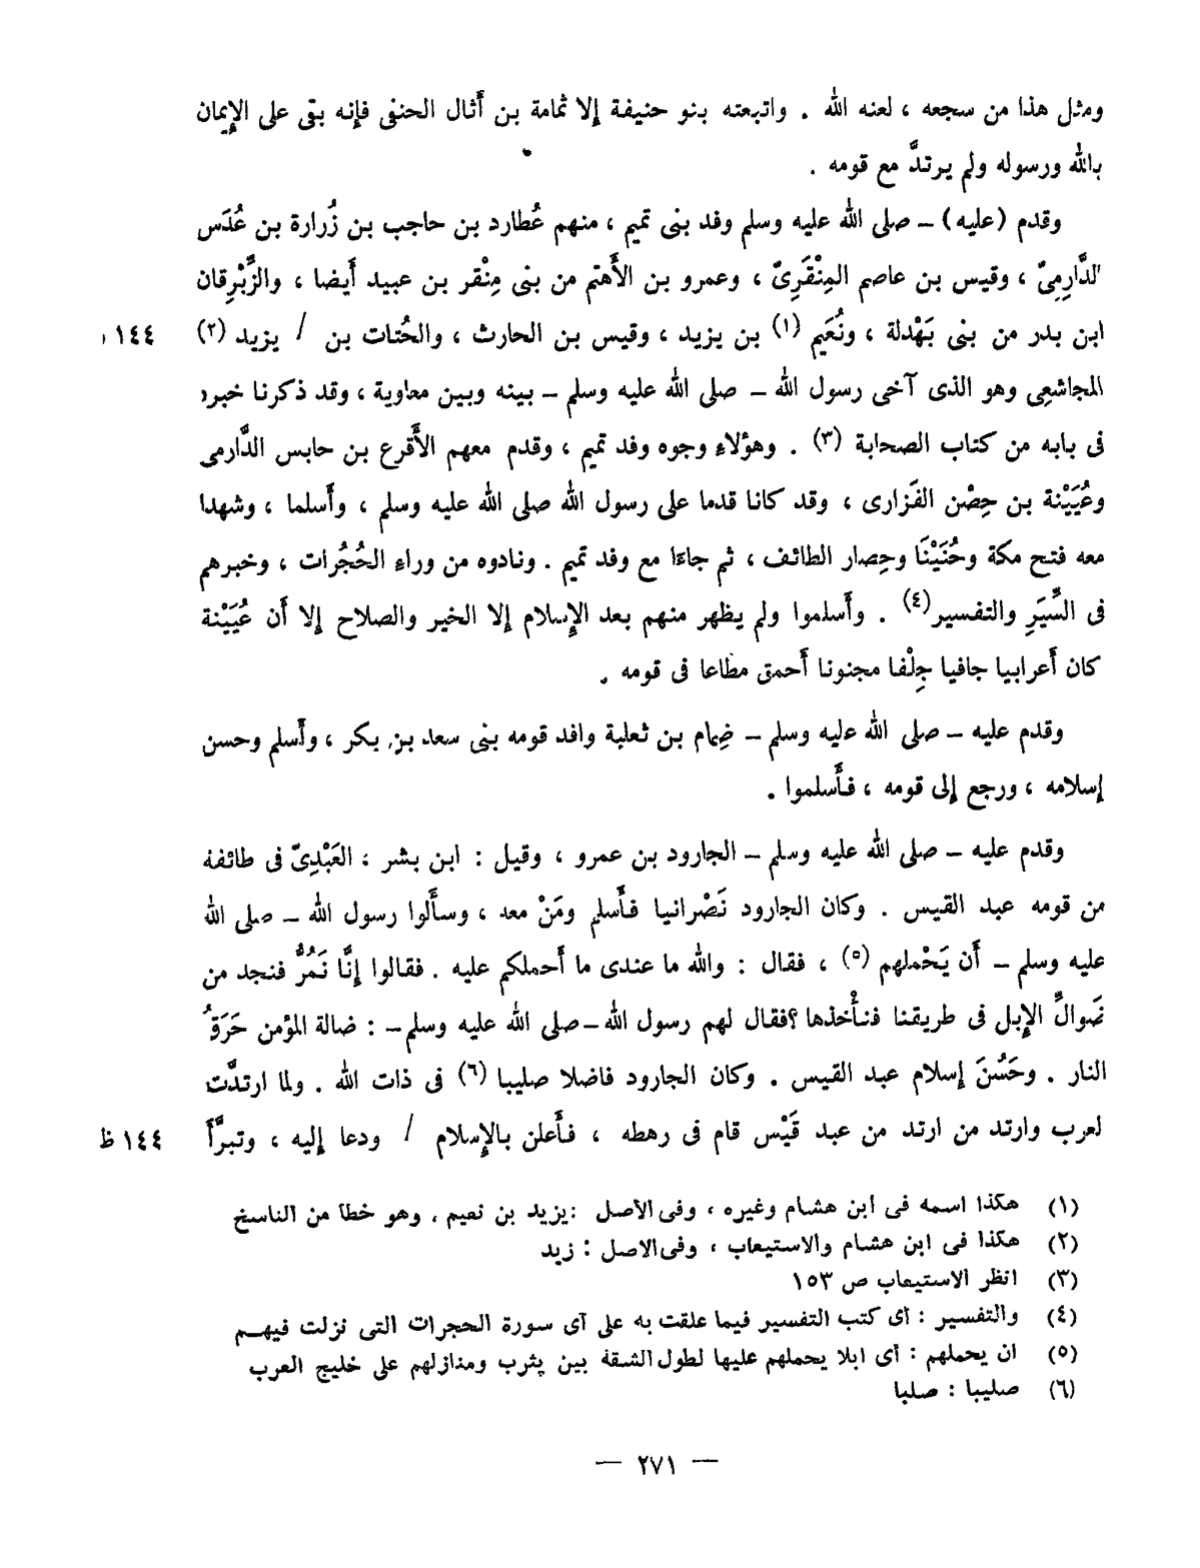 ومثل هذا من سجعه ، لعنه الله . واتبعته بنو حنيفة إلا ثمامة بن أَثال الحنفى فإنه بقى على الإيمان
بالله ورسوله ولم يرتدَّ مع قومه .
وقدم (عليه) – صلى الله عليه وسلم وفد بنى تميم ، منهم عُطارد بن حاجب بن زُرارة بن عُدَس
الدَّارِمِىّ ، وقيس بن عاصم المِنْقَرِىّ ، وعمرو بن الأَهتم من بنى مِنْقر بن عبيد أَيضا ، والزِّبْرِقان
ابن بدر من بنى بَهْدلة ، ونُعَيم (١) بن يزيد ، وقيس بن الحارث ، والحُتات بن / يزيد (٢) ١٤٤ و
المجاشعِى وهو الذى آخى رسول الله – صلى الله عليه وسلم – بينه وبين معاوية ، وقد ذكرنا خبره
فى بابه من كتاب الصحابة (٣) . وهؤلاءِ وجوه وفد تميم ، وقدم معهم الأَقرع بن حابس الدَّارمى
وعُيَيْنة بن حِصْن الفَزارى ، وقد كانا قدما على رسول الله صلى الله عليه وسلم ، وأَسلما ، وشهدا
معه فتح مكة وحُنَيْنَا وحِصار الطائف ، ثم جاءَا مع وفد تميم . ونادوه من وراءِ الحُجُرات ، وخبرهم
فى السِّيَرِ والتفسير (٤) . وأَسلموا ولم يظهر منهم بعد الإِسلام إلا الخير والصلاح إلا أن عُيَيْنة
كان أَعرابيا جافيا جِلْفا مجنونا أَحمق مطاعا فى قومه .
وقدم عليه – صلى الله عليه وسلم – ضِمام بن ثعلبة وافد قومه بنى سعد بن بكر ، وأَسلم وحسن
إسلامه ، ورجع إلى قومه ، فأَسلموا .
وقدم عليه – صلى الله عليه وسلم – الجارود بن عمرو ، وقيل : ابن بشر ، العَبْدِىّ فى طائفة
من قومه عبد القيس . وكان الجارود نَصْرانيا فأَسلم ومَنْ معه ، وسأَلوا رسول الله – صلى الله
عليه وسلم – أَن يَحْملهم (٥) ، فقال : والله ما عندى ما أَحملكم عليه . فقالوا إنَّا نَمُرُّ فنجد من
ضَوالِّ الإبل فى طريقنا فنأْخذها ؟ فقال لهم رسول الله – صلى الله عليه وسلم – : ضالة المؤمن حَرَقُ
النار . وحَسُنَ إسلام عبد القيس . وكان الجارود فاضلا صليبا (٦) فى ذات الله . ولما ارتدَّت
لعرب وارتد من ارتد من عبد قَيْس قام فى رهطه ، فأَعلن بالإِسلام / ودعا إليه ، وتبرَّأَ ١٤٤ ظ
(١) هكذا اسمه فى ابن هشام وغيره ، وفى الأصل : يزيد بن نعيم . وهو خطأ من الناسخ
(٢) هكذا فى ابن هشام والاستيعاب ، وفى الاصل : زيد
(٣) انظر الاستيعاب ص ١٥٣
(٤) والتفسير : أى كتب التفسير فيما علقت به على آى سورة الحجرات التى نزلت فيهم
(٥) ان يحملهم : أى ابلا يحملهم عليها لطول الشقة بين يثرب ومنازلهم على خليج العرب
(٦) صليبا : صلبا
— ٢٧١ —